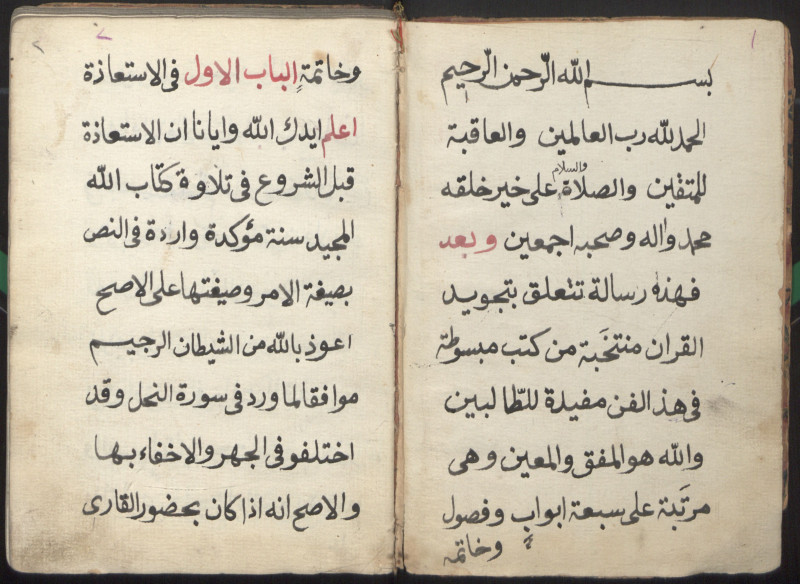 ١
بسم الله الرحمن الرحيم
الحمد لله رب العالمين والعاقبة
للمتقين والصلاة والسلام على خير خلقه
محمد واله وصحبه اجمعين وبعد
فهذه رسالة تتعلق بتجويد
القران منتخبة من كتب مبسوطة
فى هذ الفن مفيدة للطالبين
والله هو المفق والمعين وهى
مرتبة على سبعة ابواب وفصول
وخاتمة
٢
٢
وخاتمة الباب الاول فى الاستعاذة
اعلم ايدك الله وايانا ان الاستعاذة
قبل الشروع فى تلاوة كتاب الله
المجيد سنة مؤكدة واردة فى النص
بصيغة الامر وصيغتها على الاصح
اعوذ بالله من الشيطان الرجيم
موافقا لما ورد فى سورة النحل وقد
اختلفو فى الجهر والاخفاء بها
والاصح انه اذا كان بحضور القارى